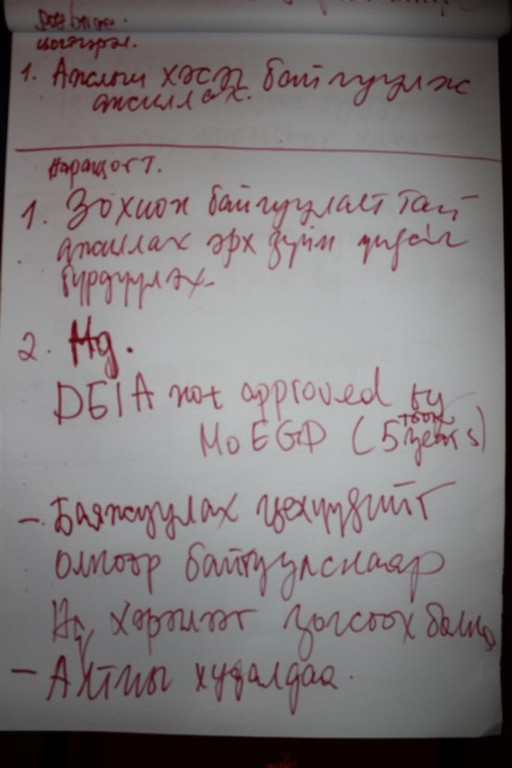 1. Ажлын хэсэг байгуулж
ажиллах.
1. Зохион байгуулалттай
ажиллах эрх зүйн
бүрдүүлэх.
2. Hg.
DEIA not approved by
MoEGD (5 years)
- Баяжуулах цехүүдийг
олноор байгуулснаар
Hg хэрэглээг зогсоох болно
- Алтны худалдаа.